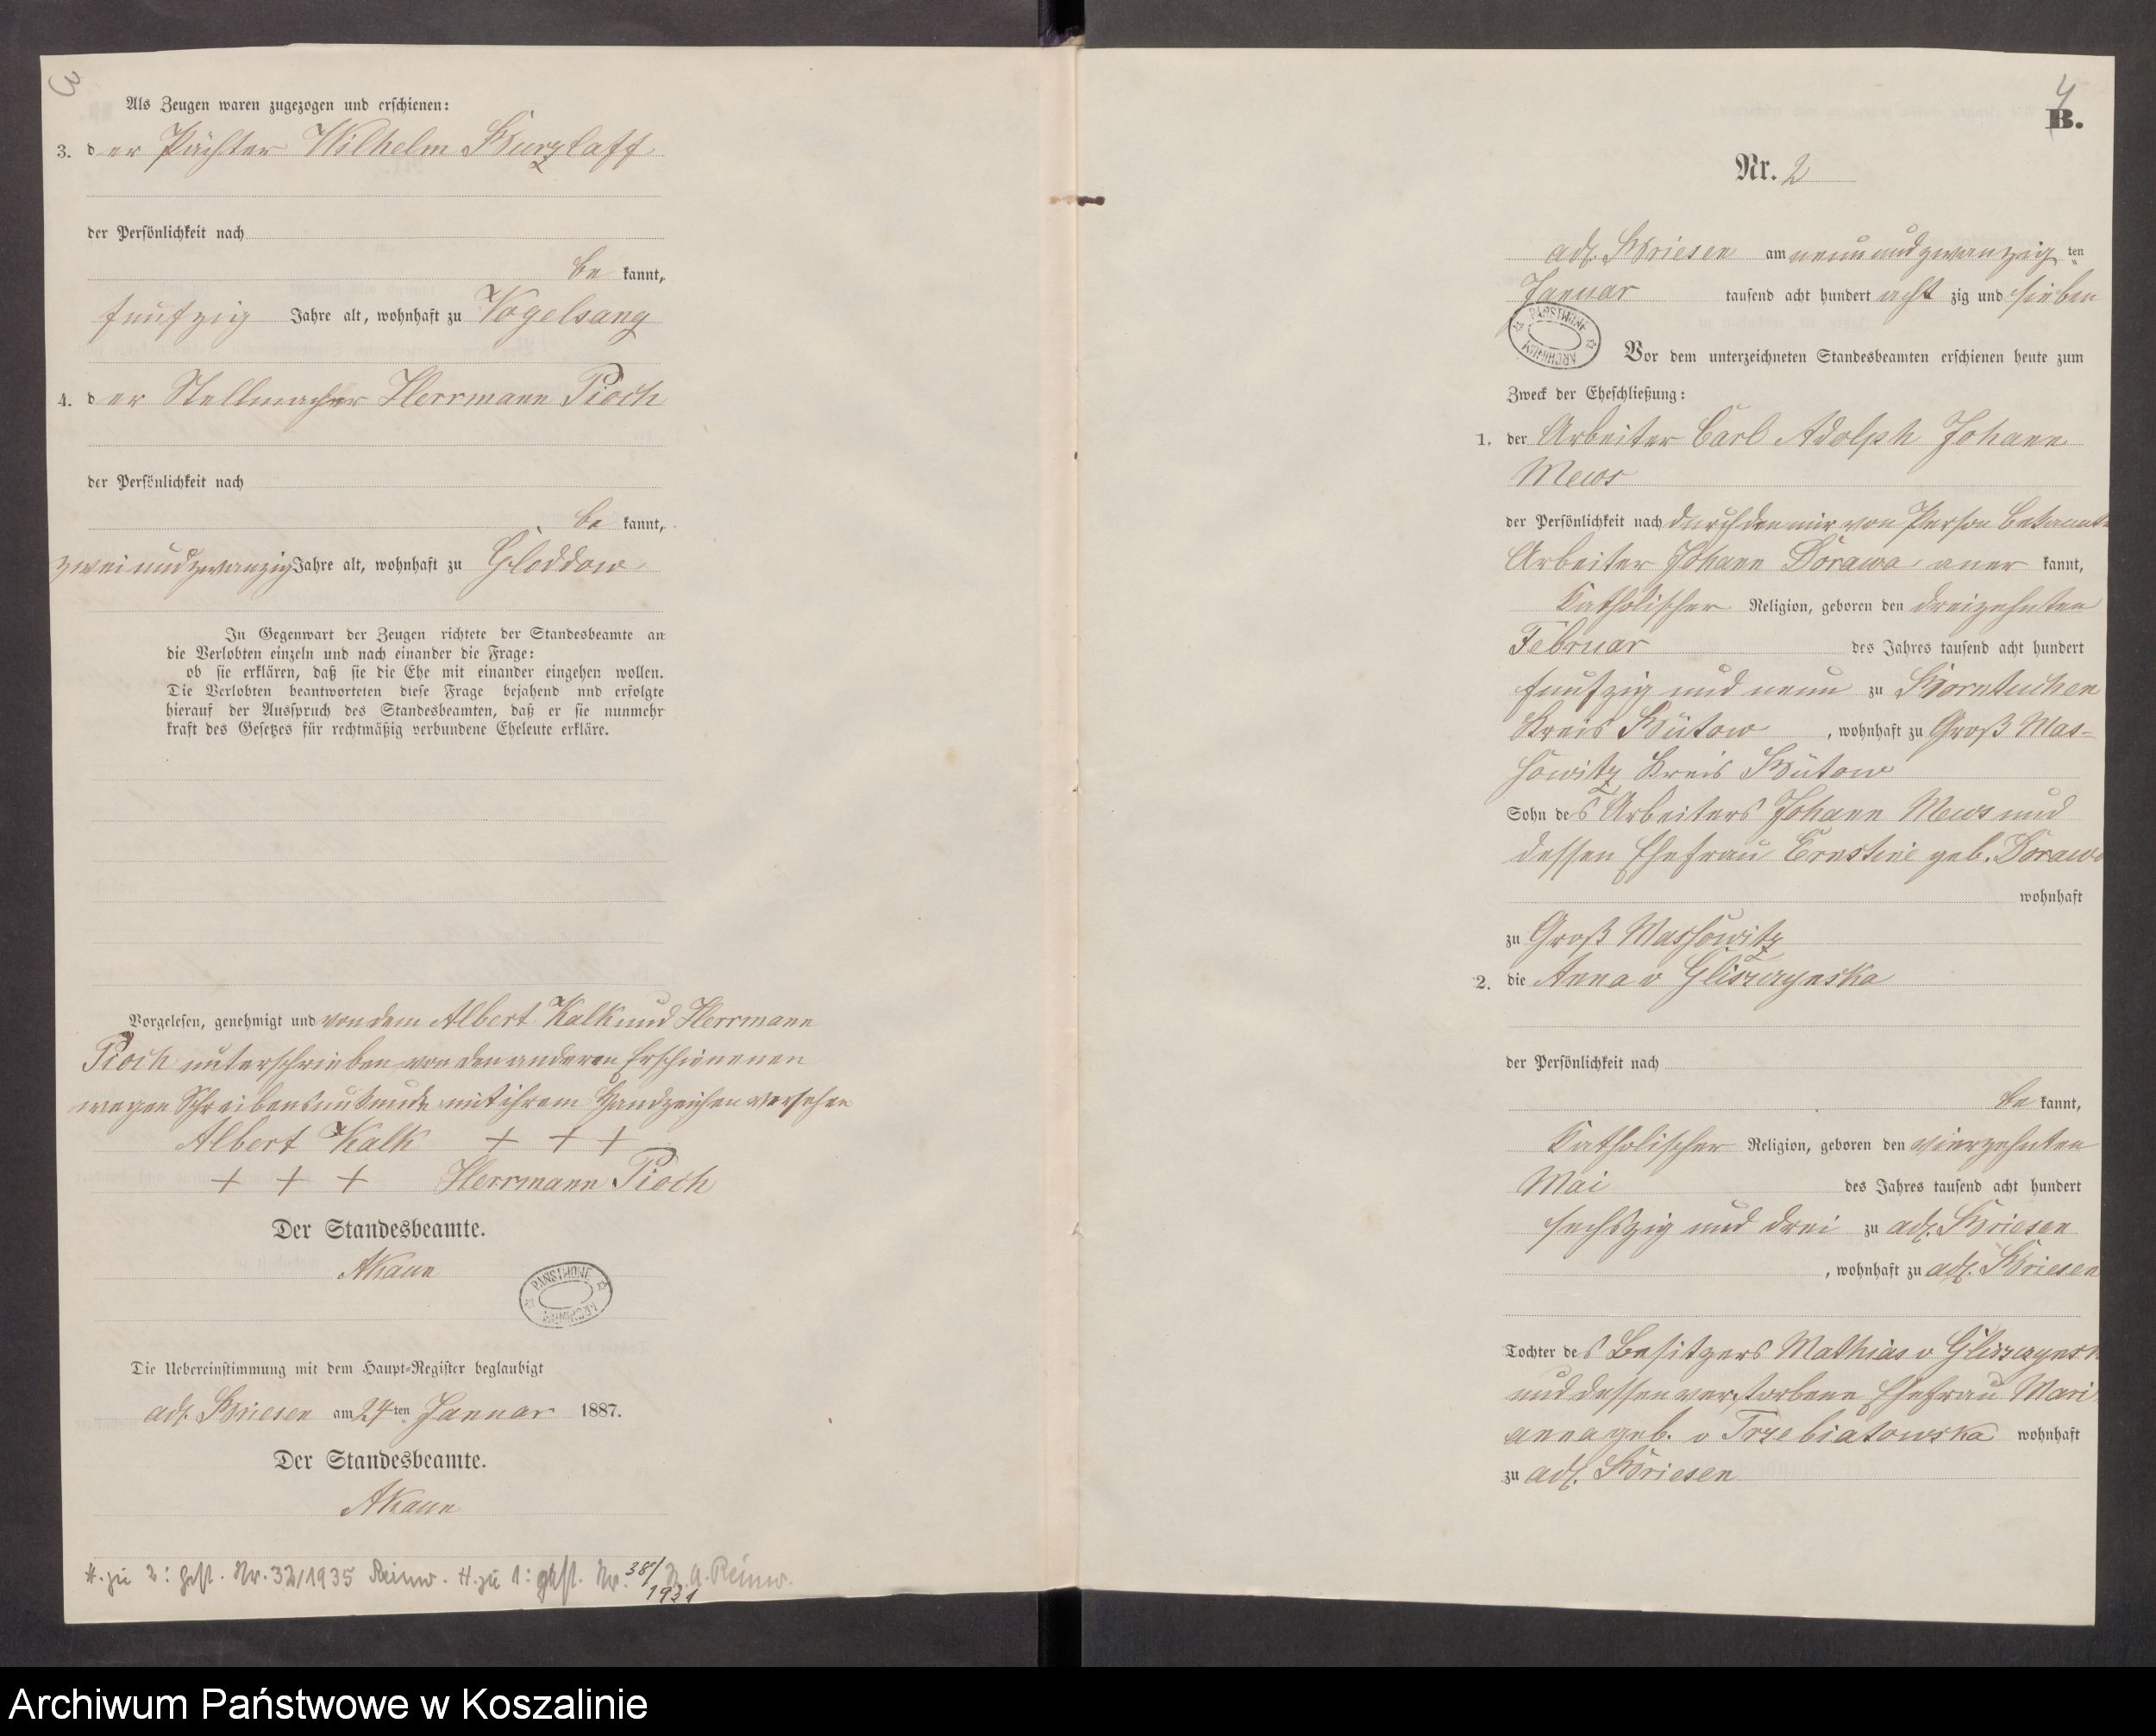 3
Als Zeugen waren zugezogen und erschienen:
3. der Pächter Wilhelm Kurzlaff
der Persönlichkeit nach
be kannt,
funfzig Jahre alt, wohnhaft zu Vogelsang
4. der Stellmacher Herrmann Pioch
der Persönlichkeit nach
be kannt,
zweiundzwanzig Jahre alt, wohnhaft zu Gloddow
In Gegenwart der Zeugen richtete der Standesbeamte an
die Verlobten einzeln und nach einander die Frage:
ob sie erklären, daß sie die Ehe mit einander eingehen wollen.
Die Verlobten beantworteten diese Frage bejahend und erfolgte
hierauf der Ausspruch des Standesbeamten, daß er sie nunmehr
kraft des Gesetzes für rechtmäßig verbundene Eheleute erkläre.
Vorgelesen, genehmigt und von dem Albert Kalk und Herrmann
Pioch unterschrieben von den anderen Erschienenen
wegen Schreibensunkunde mit ihrem Handzeichen versehen
Albert Kalk + + +
+ + + Herrmann Pioch
Der Standesbeamte.
AKaun
PAŃSTWOWE ARCHIWUM
Die Uebereinstimmung mit dem Haupt-Register beglaubigt
adl. Briesen am 24ten Januar 1887.
Der Standesbeamte.
AKaun
H. zu 2: Nr. 32/1935 H. zu 1: Nr. 38/
1931
4
B.
Nr. 2
adl. Briesen am neunundzwanzig ten
Januar tausend acht hundert acht zig und sieben
PAŃSTWOWE ARCHIWUM
Vor dem unterzeichneten Standesbeamten erschienen heute zum
Zweck der Eheschließung:
1. der Arbeiter Carl Adolph Johann
Mews
der Persönlichkeit nach durch den mir von Person bekannten
Arbeiter Johann Dorawa aner kannt,
katholischer Religion, geboren den dreizehnten
Februar des Jahres tausend acht hundert
funfzig und neun zu Borntuchen
Kreis Bütow , wohnhaft zu Groß Mas=
sowitz Kreis Bütow
Sohn des Arbeiters Johann Mews und
dessen Ehefrau Ernstine geb. Dorawa
wohnhaft
zu Groß Massowitz
2. die Anna v Gliszczynska
der Persönlichkeit nach
be kannt,
katholischer Religion, geboren den vierzehnten
Mai des Jahres tausend acht hundert
sechszig und drei zu adl. Briesen
, wohnhaft zu adl. Briesen
Tochter des Besitzers Mathias v Gliszczynsk
und dessen verstorbene Ehefrau Mari
anna geb. v Trzebiatowska wohnhaft
zu adl. Briesen
Archiwum Państwowe w Koszalinie